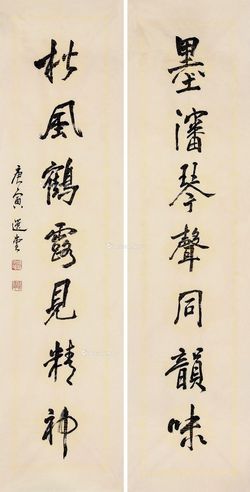 墨瀋琴聲同韻味
秋風鶴露見精神
庚寅 選堂